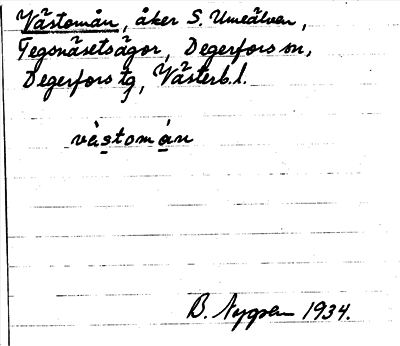 Västomån, åker S. Umeälven,
Tegsnäsetsägor, Degerfors sn,
Degerfors tg, Västerb.l.
västomån
B. Nygren 1934.